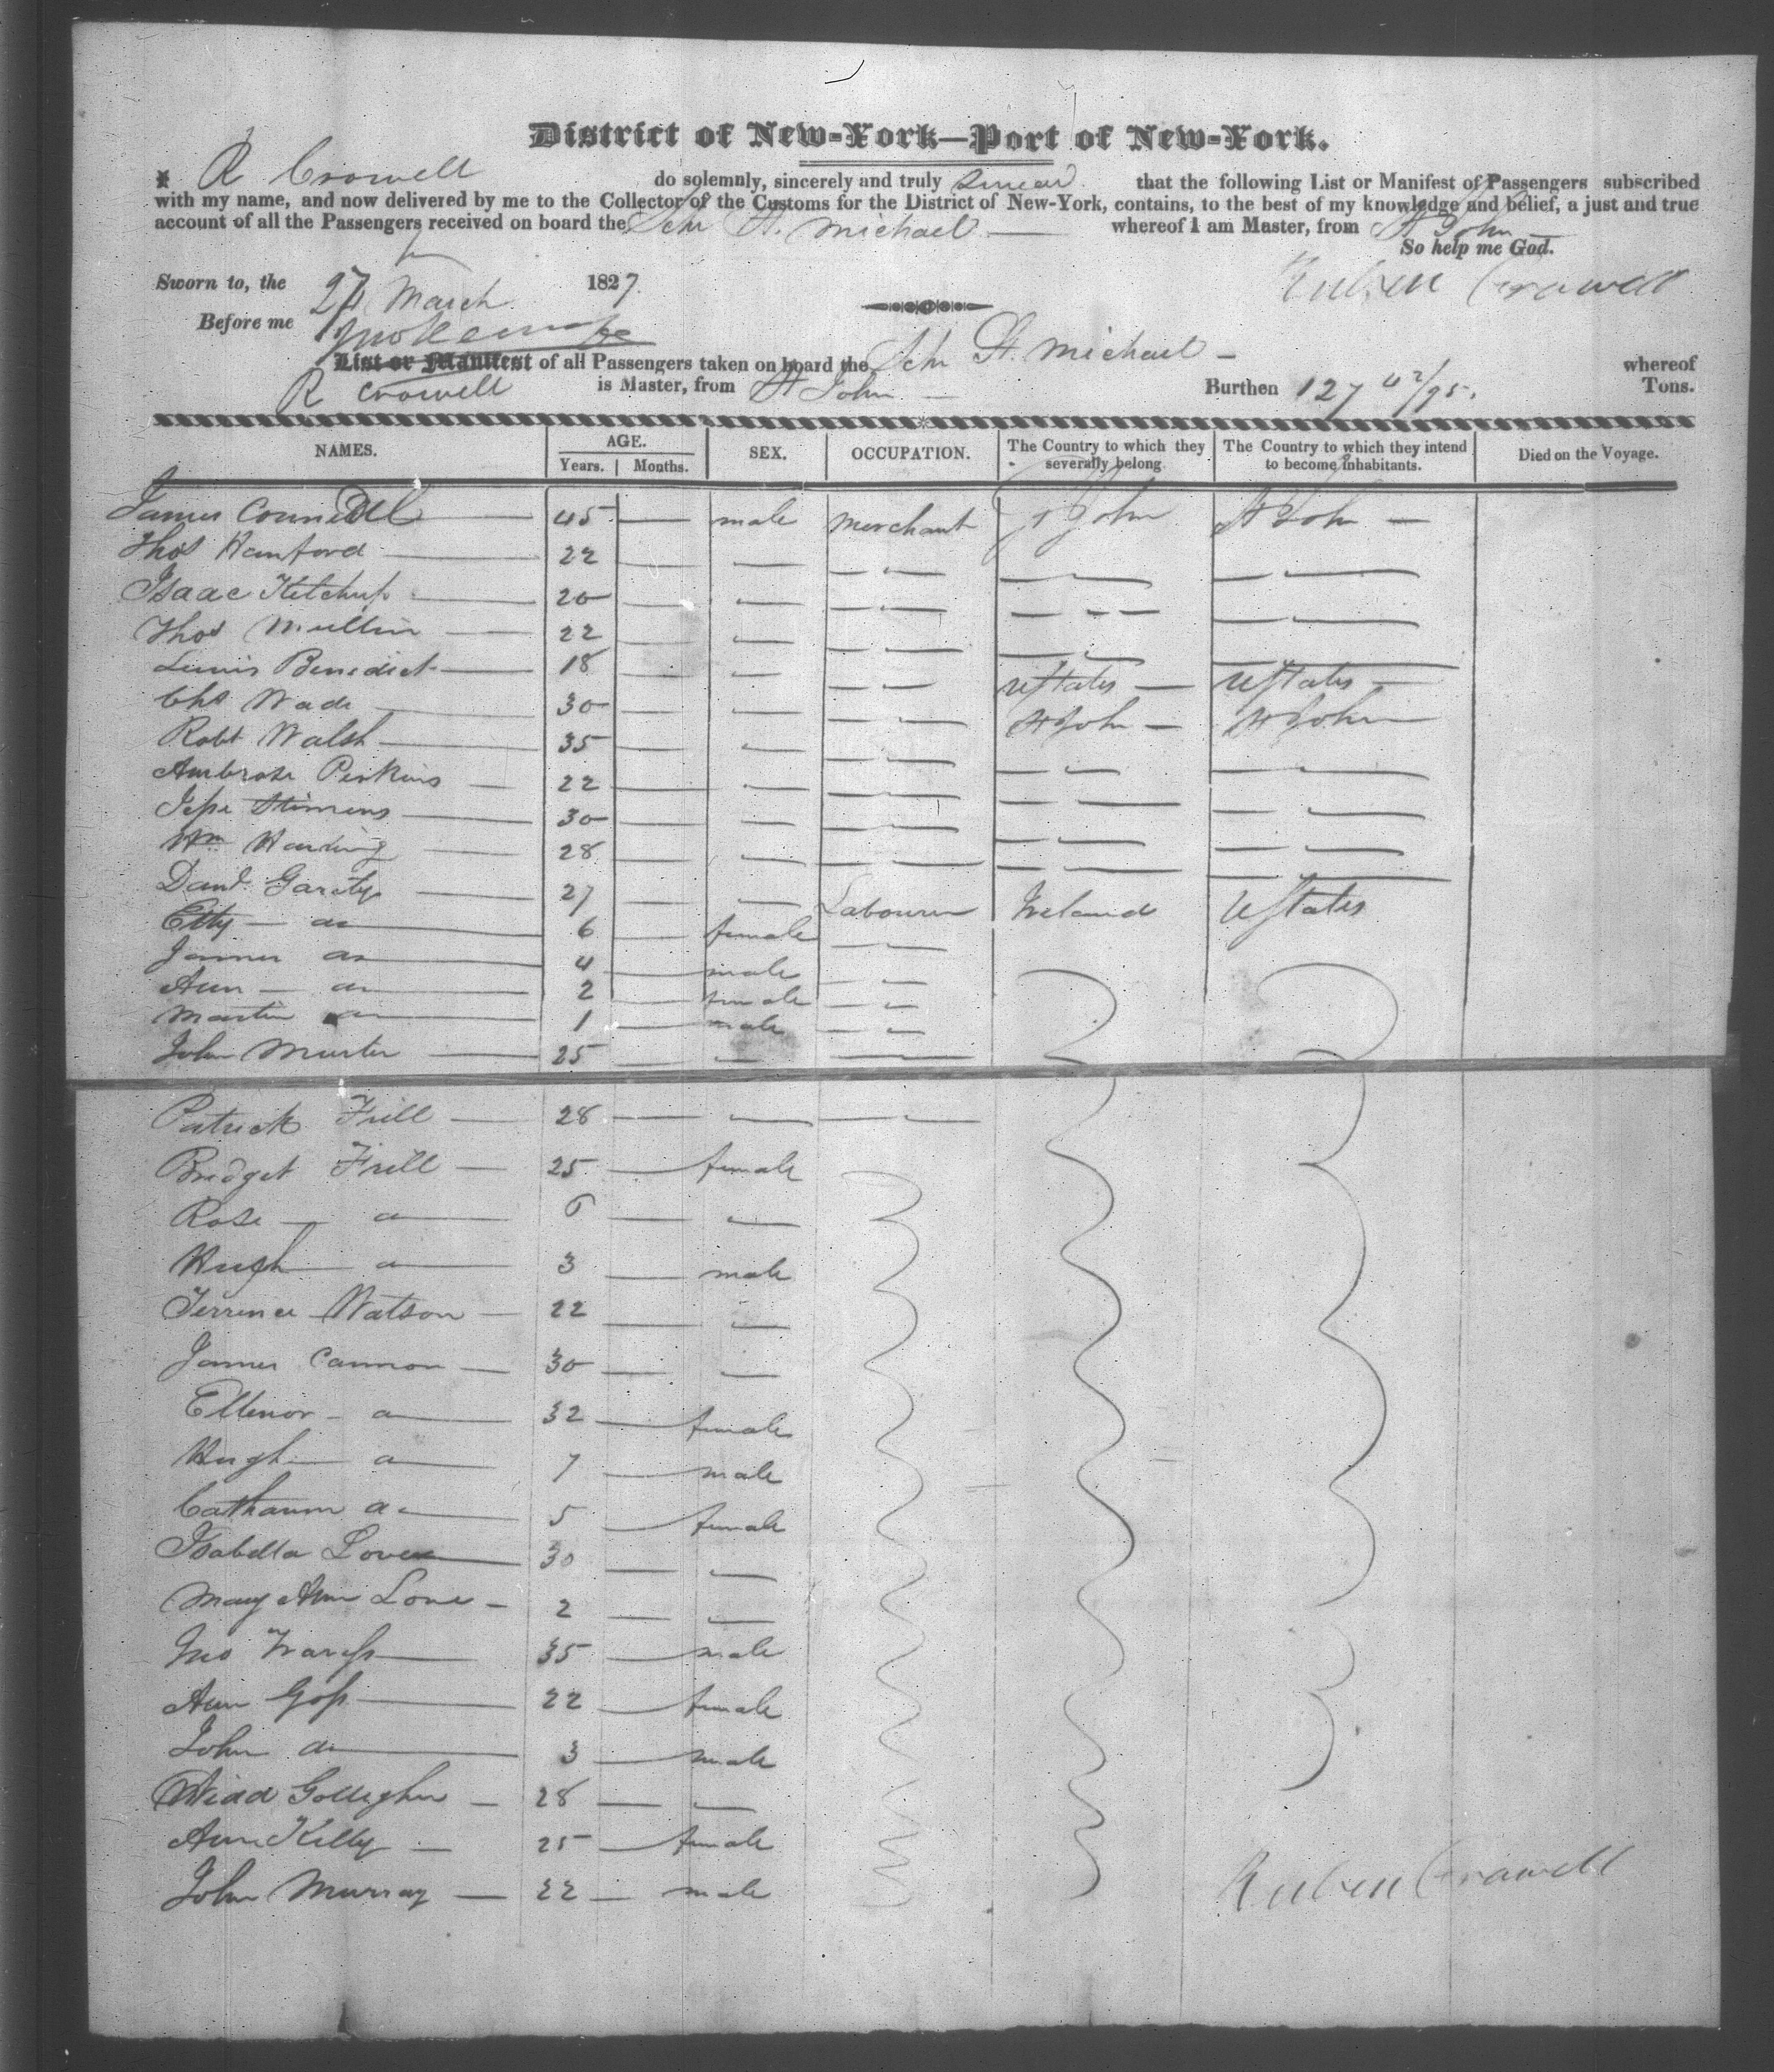 District of New-York—Port of New-York.
I R Crowell do solemnly, sincerely and truly swear that the following List or Manifest of Passengers subscribed
with my name, and now delivered by me to the Collector of the Customs for the District of New-York, contains, to the best of my knowledge and belief, a just and true
account of all the Passengers received on board the Schr St. Michael — whereof I am Master, from St John —
So help me God.
Sworn to, the 27 March 1827. Ruben Crowell
Before me
List or Manifest of all Passengers taken on board the Schr St. Michael — whereof
R Crowell is Master, from St John — Burthen 127 42/95. Tons.
NAMES. AGE. SEX. OCCUPATION. The Country to which they severally belong. The Country to which they intend to become inhabitants. Died on the Voyage.
Years. Months.
James Connell 45 — male Merchant St John St John —
Thos Hanford 22 — — — — — —
Isaac Ketchup 20 — — — — — —
Thos Mullin 22 — — — — — —
Lewis Benedict 18 — — — — UStates — UStates —
Chs Wade 30 — — — — St John — St John —
Robt Walsh 35 — — — — — —
Ambrose Perkins 22 — — — — — —
Jesse Stimens 30 — — — — — —
Wm Harding 28 — — — — — —
Danl. Garety 27 — — Labourer Ireland UStates
Etty — do 6 — female — —
James do 4 — male — —
Ann — do 2 — female — —
Martin do 1 — male — —
John Murter 25 — — —
Patrick Frill — 28 — — — —
Bridget Frill — 25 — female
Rose — do 6 — —
Hugh do 3 — male
Terrence Watson — 22 — —
James Cannon — 30 — —
Ellenor — do 32 — female
Hugh — do 7 — male
Catharine do 5 — female
Isabella Love 30 — —
Mary Ann Love — 2 — —
Jno 35 — male
Ann Goss 22 — female
John do 3 — male
Gollagher — 28 — —
Ann Kelly — 25 — female
John Murray — 22 — male
Ruben Crowell